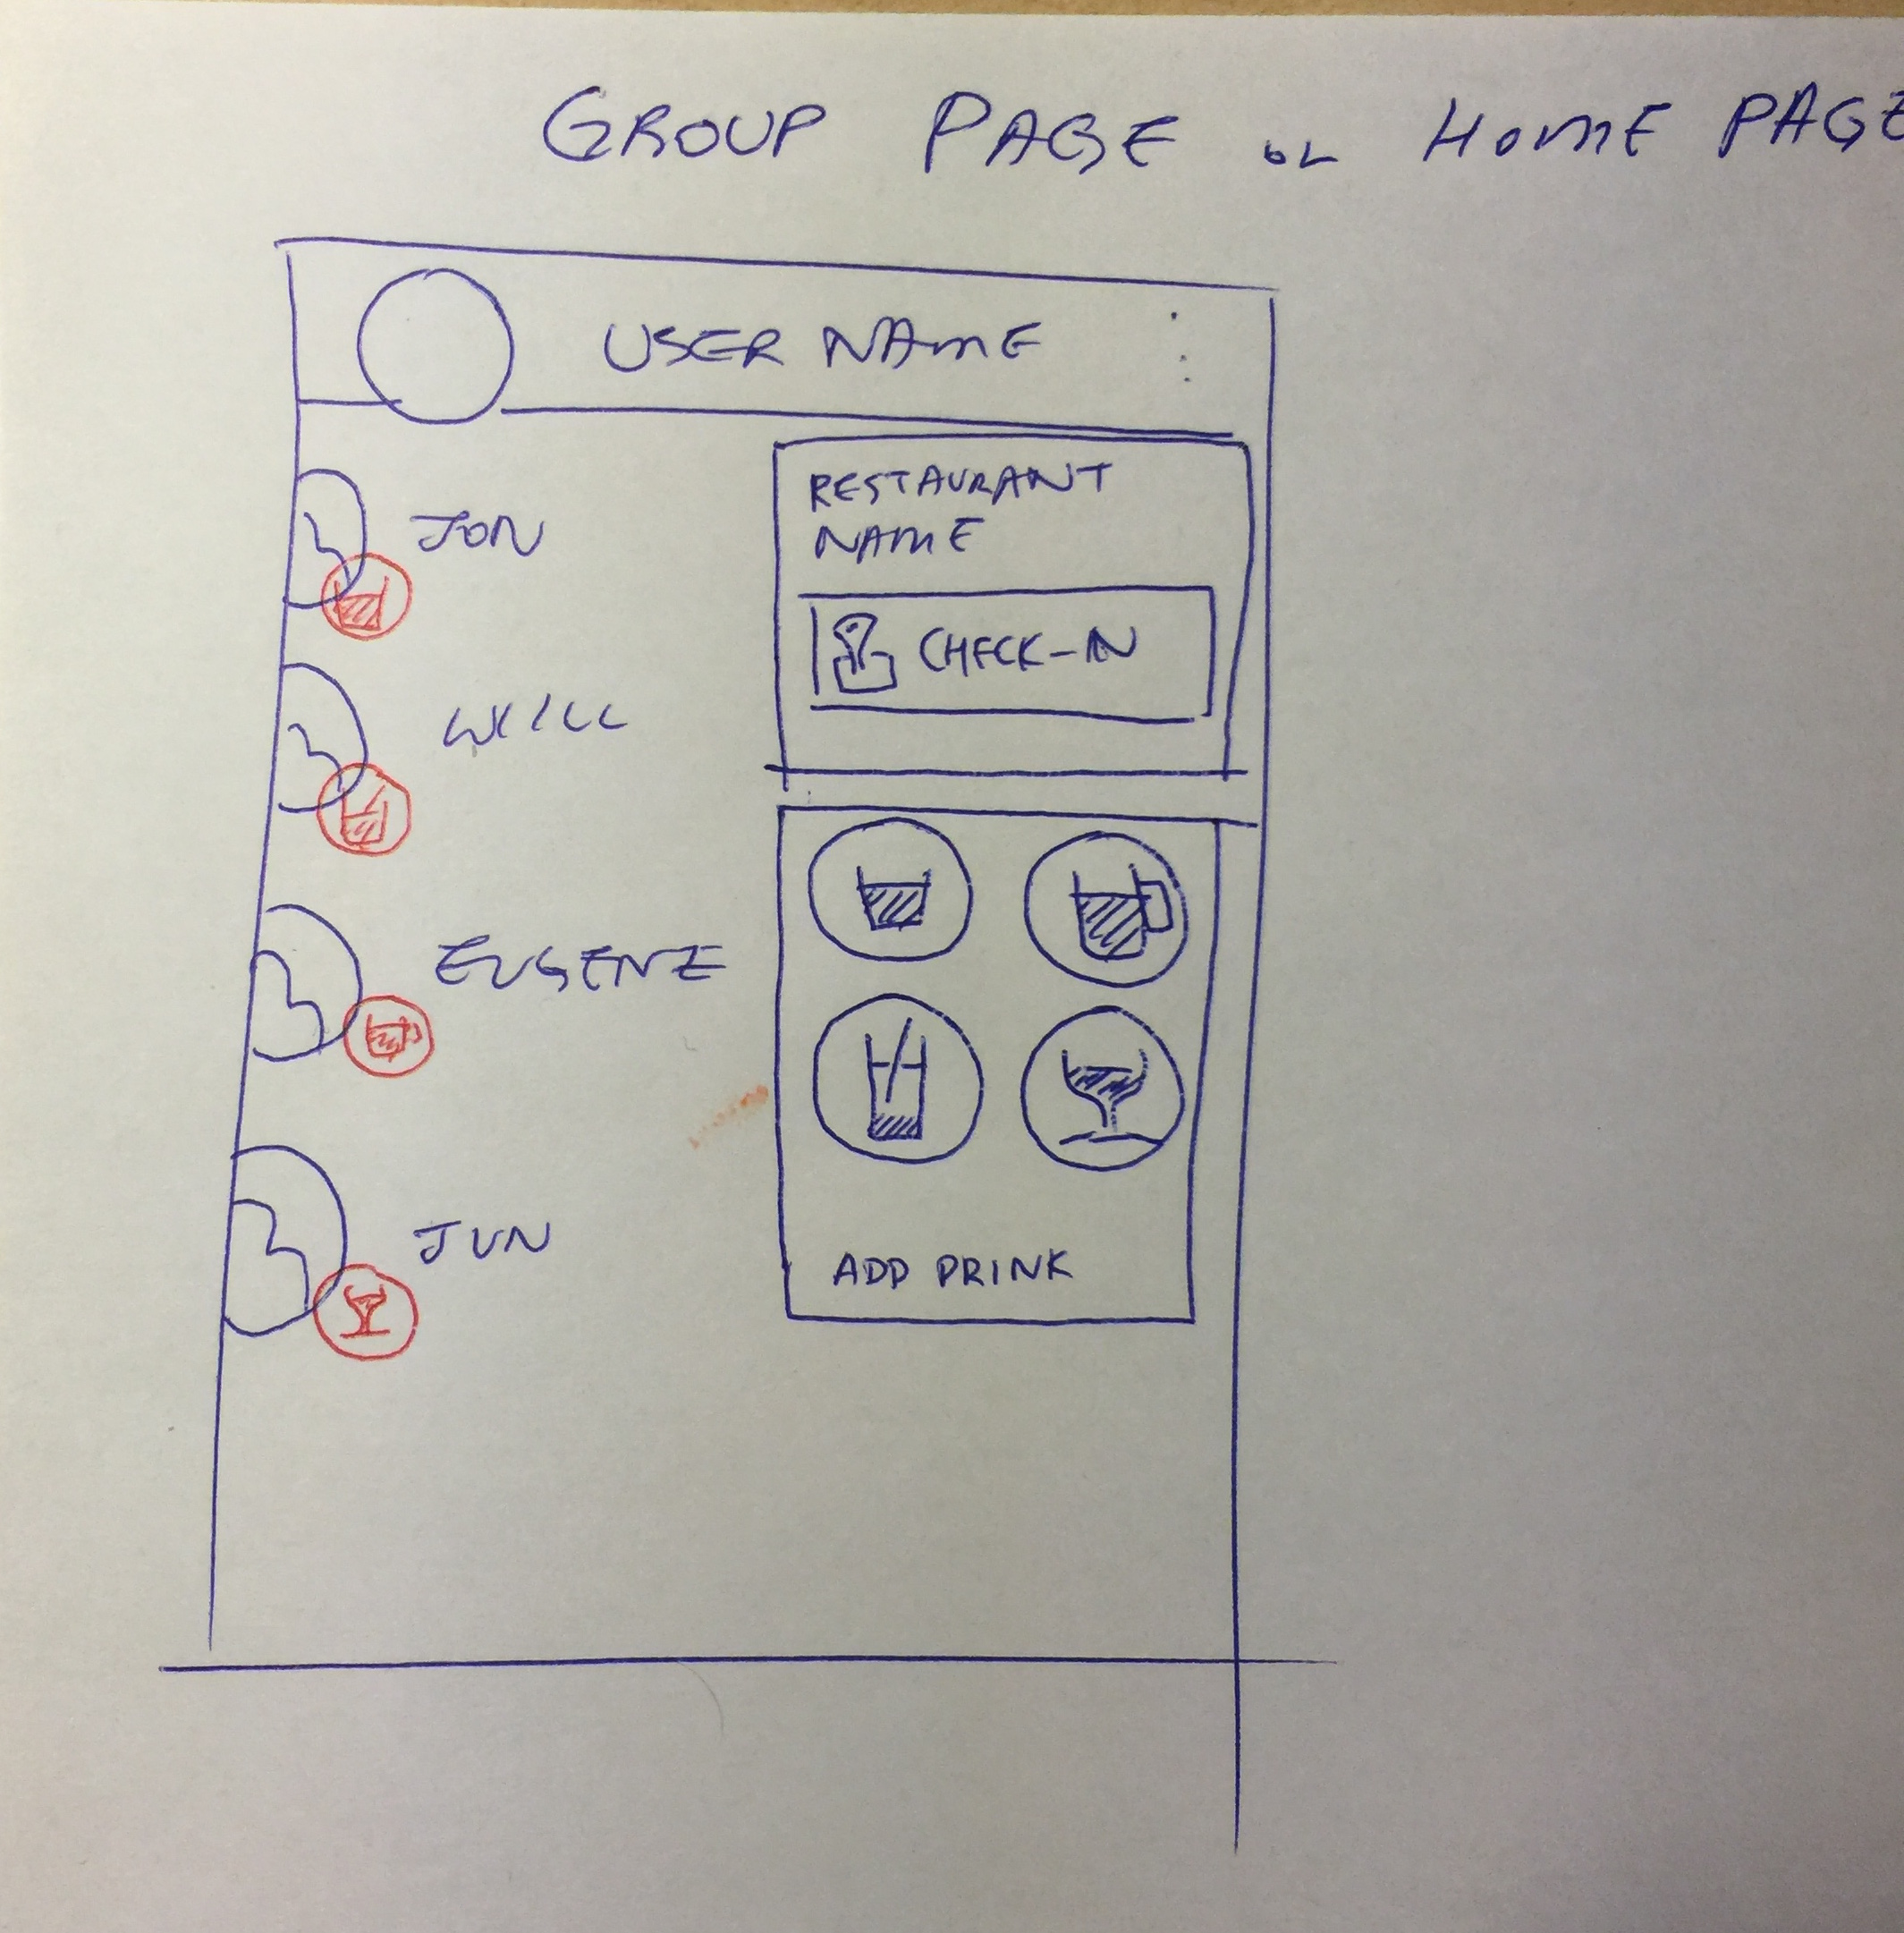 GROUP PAGE or HOME PAGE
USER NAME
JON
WILL
EUGENE
JUN
RESTAURANT
NAME
CHECK-IN
ADD DRINK